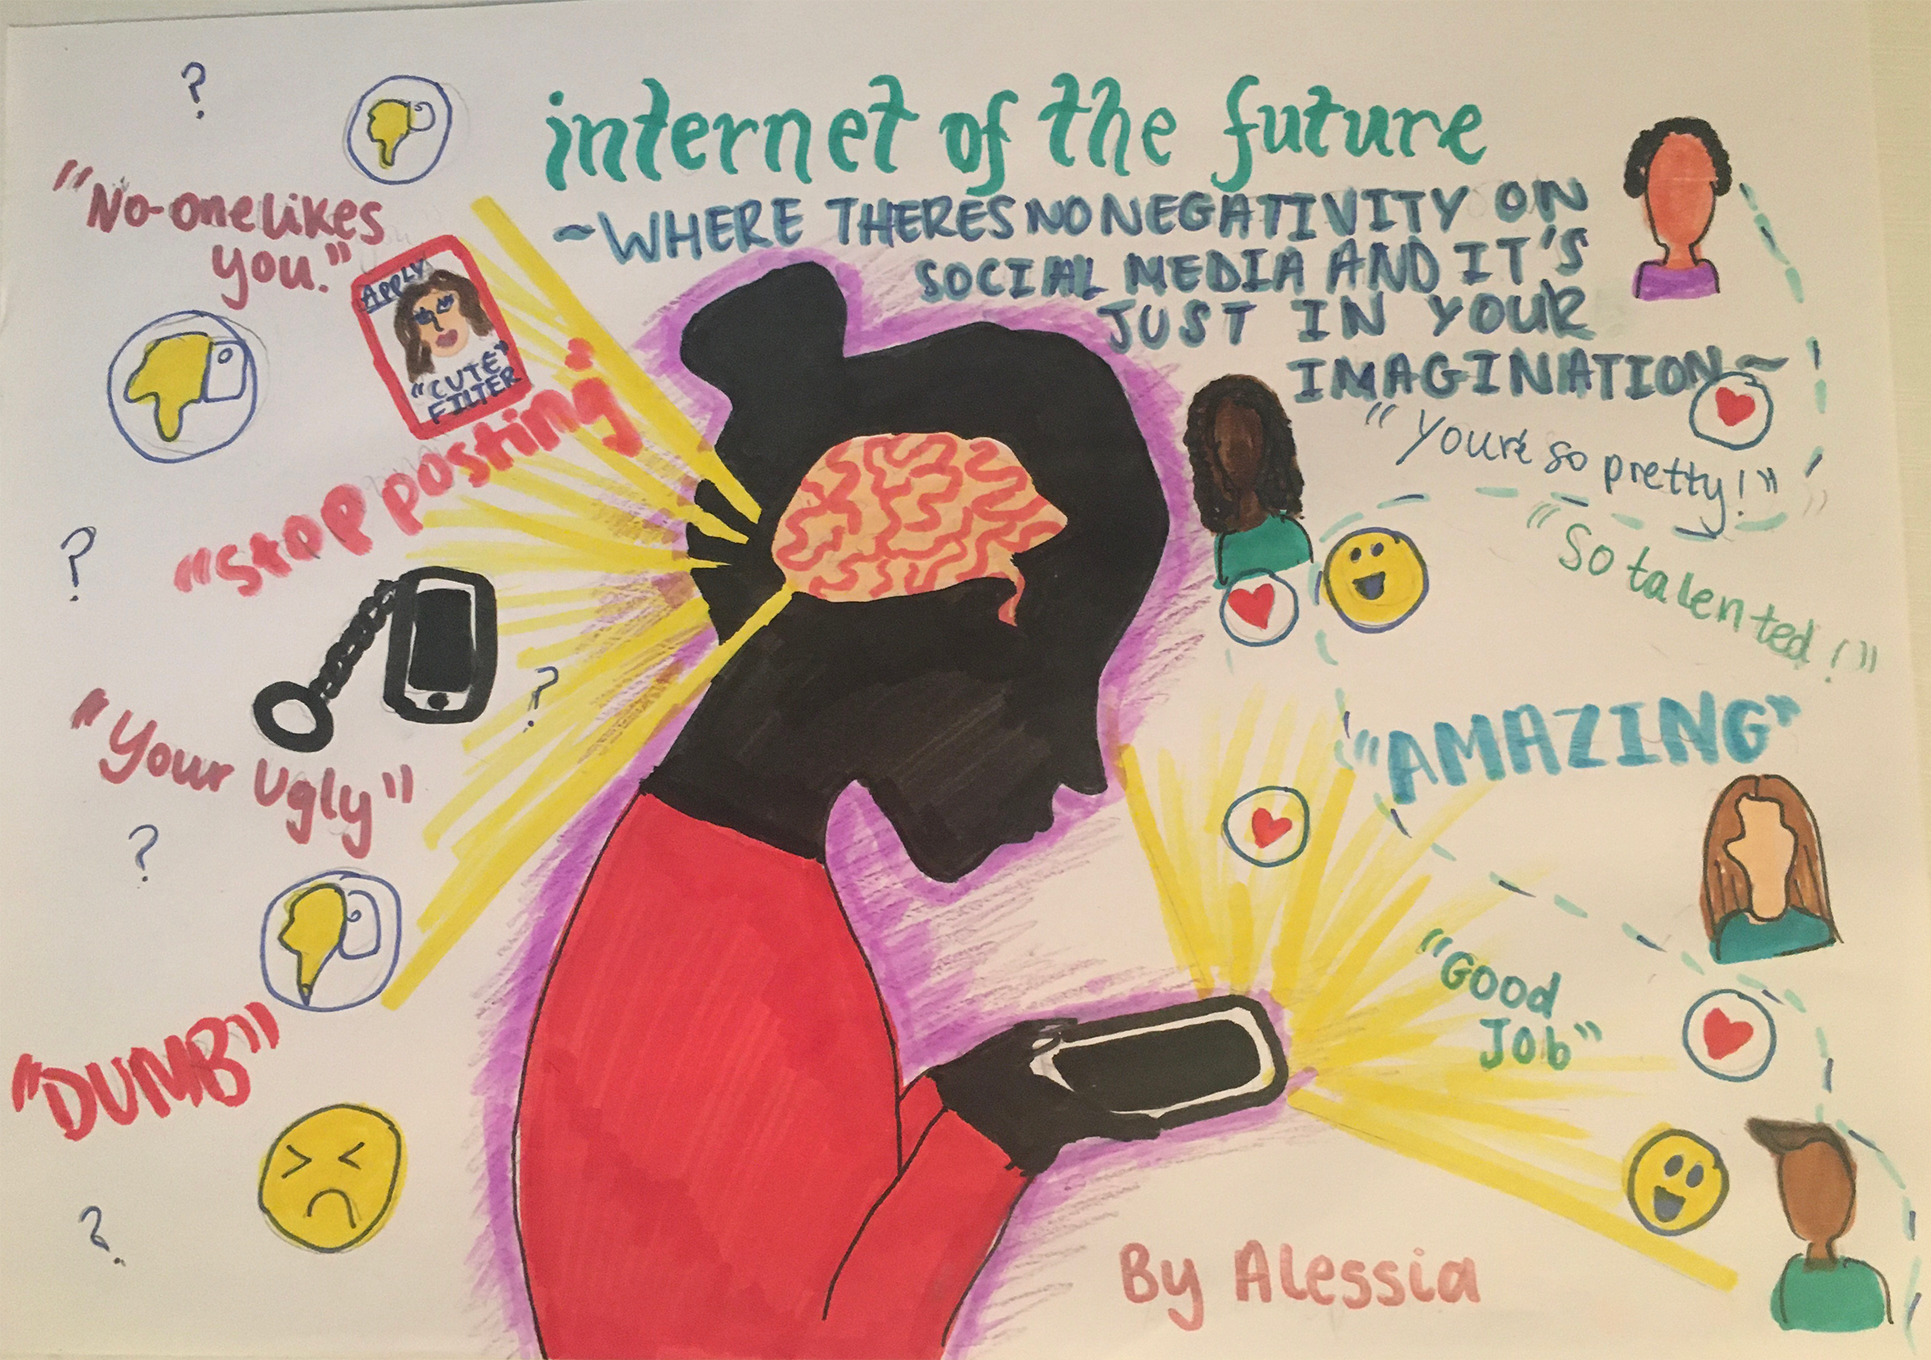 internet of the future
~WHERE THERES NO NEGATIVITY ON
SOCIAL MEDIA AND IT'S
JUST IN YOUR
IMAGINATION~
?
"No-one likes
you."
APPLY
"CUTE"
FILTER
"Stop posting"
?
?
"Your Ugly"
?
"DUMB"
?
"Your so pretty!"
"So talented!"
"AMAZING"
"Good
Job"
By Alessia